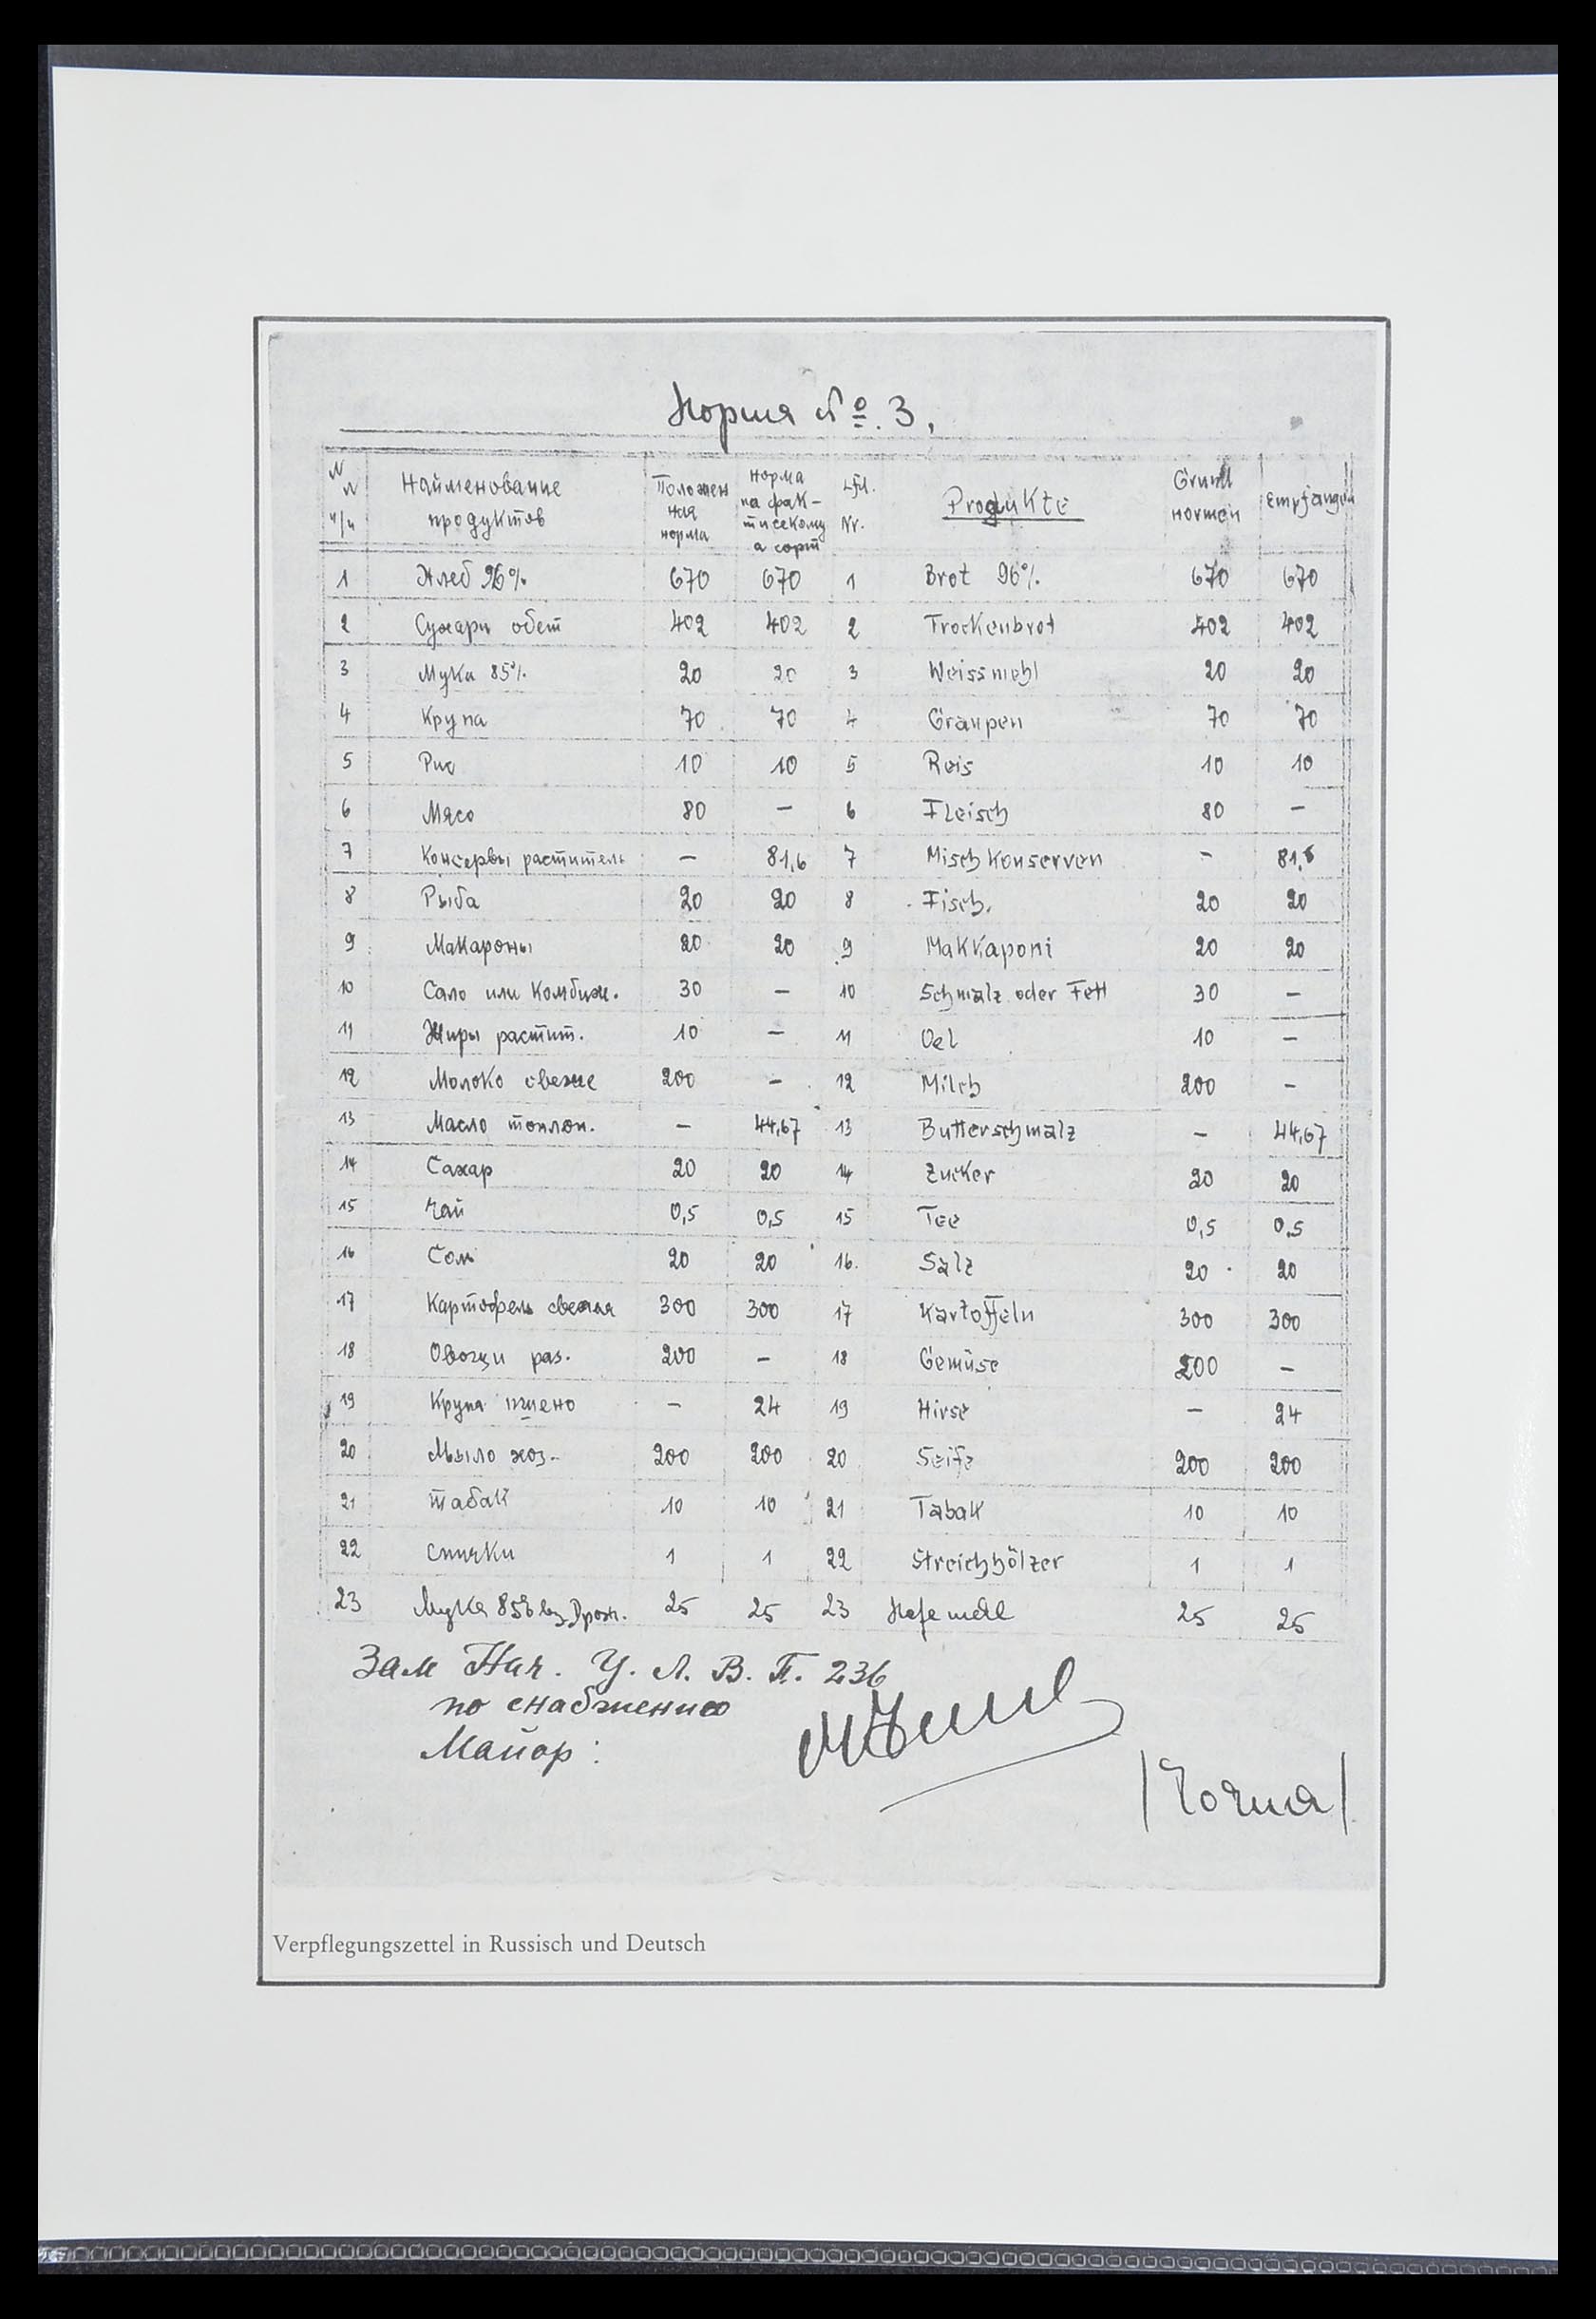 Норма № 3.
N N п/п Наименование продуктов Положен ная норма норма на фак- тисекому а сорт Lfd. Nr. Produkte Grund normen Empfangen
1 Хлеб 96% 670 670 1 Brot 96% 670 670
2 Сухари обет 402 402 2 Trockenbrot 402 402
3 Мука 85% 20 20 3 Weissmehl 20 20
4 Крупа 70 70 4 Graupen 70 70
5 Рис 10 10 5 Reis 10 10
6 Мясо 80 — 6 Fleisch 80 —
7 Консервы раститель — 81,6 7 Misch Konserven — 81,6
8 Рыба 20 20 8 Fisch. 20 20
9 Макароны 20 20 9 Makkaponi 20 20
10 Сало или Комбиж. 30 — 10 Schmalz oder Fett 30 —
11 Жиры растит. 10 — 11 Oel 10 —
12 Молоко свеже 200 — 12 Milch 200 —
13 Масло топлен. — 44,67 13 Butterschmalz — 44,67
14 Сахар 20 20 14 Zucker 20 20
15 Чай 0,5 0,5 15 Tee 0,5 0,5
16 Соль 20 20 16. Salz 20 20
17 Картофель свежая 300 300 17 Kartoffeln 300 300
18 Овощи раз. 200 — 18 Gemüse 200 —
19 Крупа пшено — 24 19 Hirse — 24
20 Мыло хоз. 200 200 20 Seife 200 200
21 табак 10 10 21 Tabak 10 10
22 спички 1 1 22 Streichhölzer 1 1
23 Мука 85% 25 25 23 Hefemehl 25 25
Зам Нач. У. Л. В. П. 236
по снабжению
Майор:
Verpflegungszettel in Russisch und Deutsch